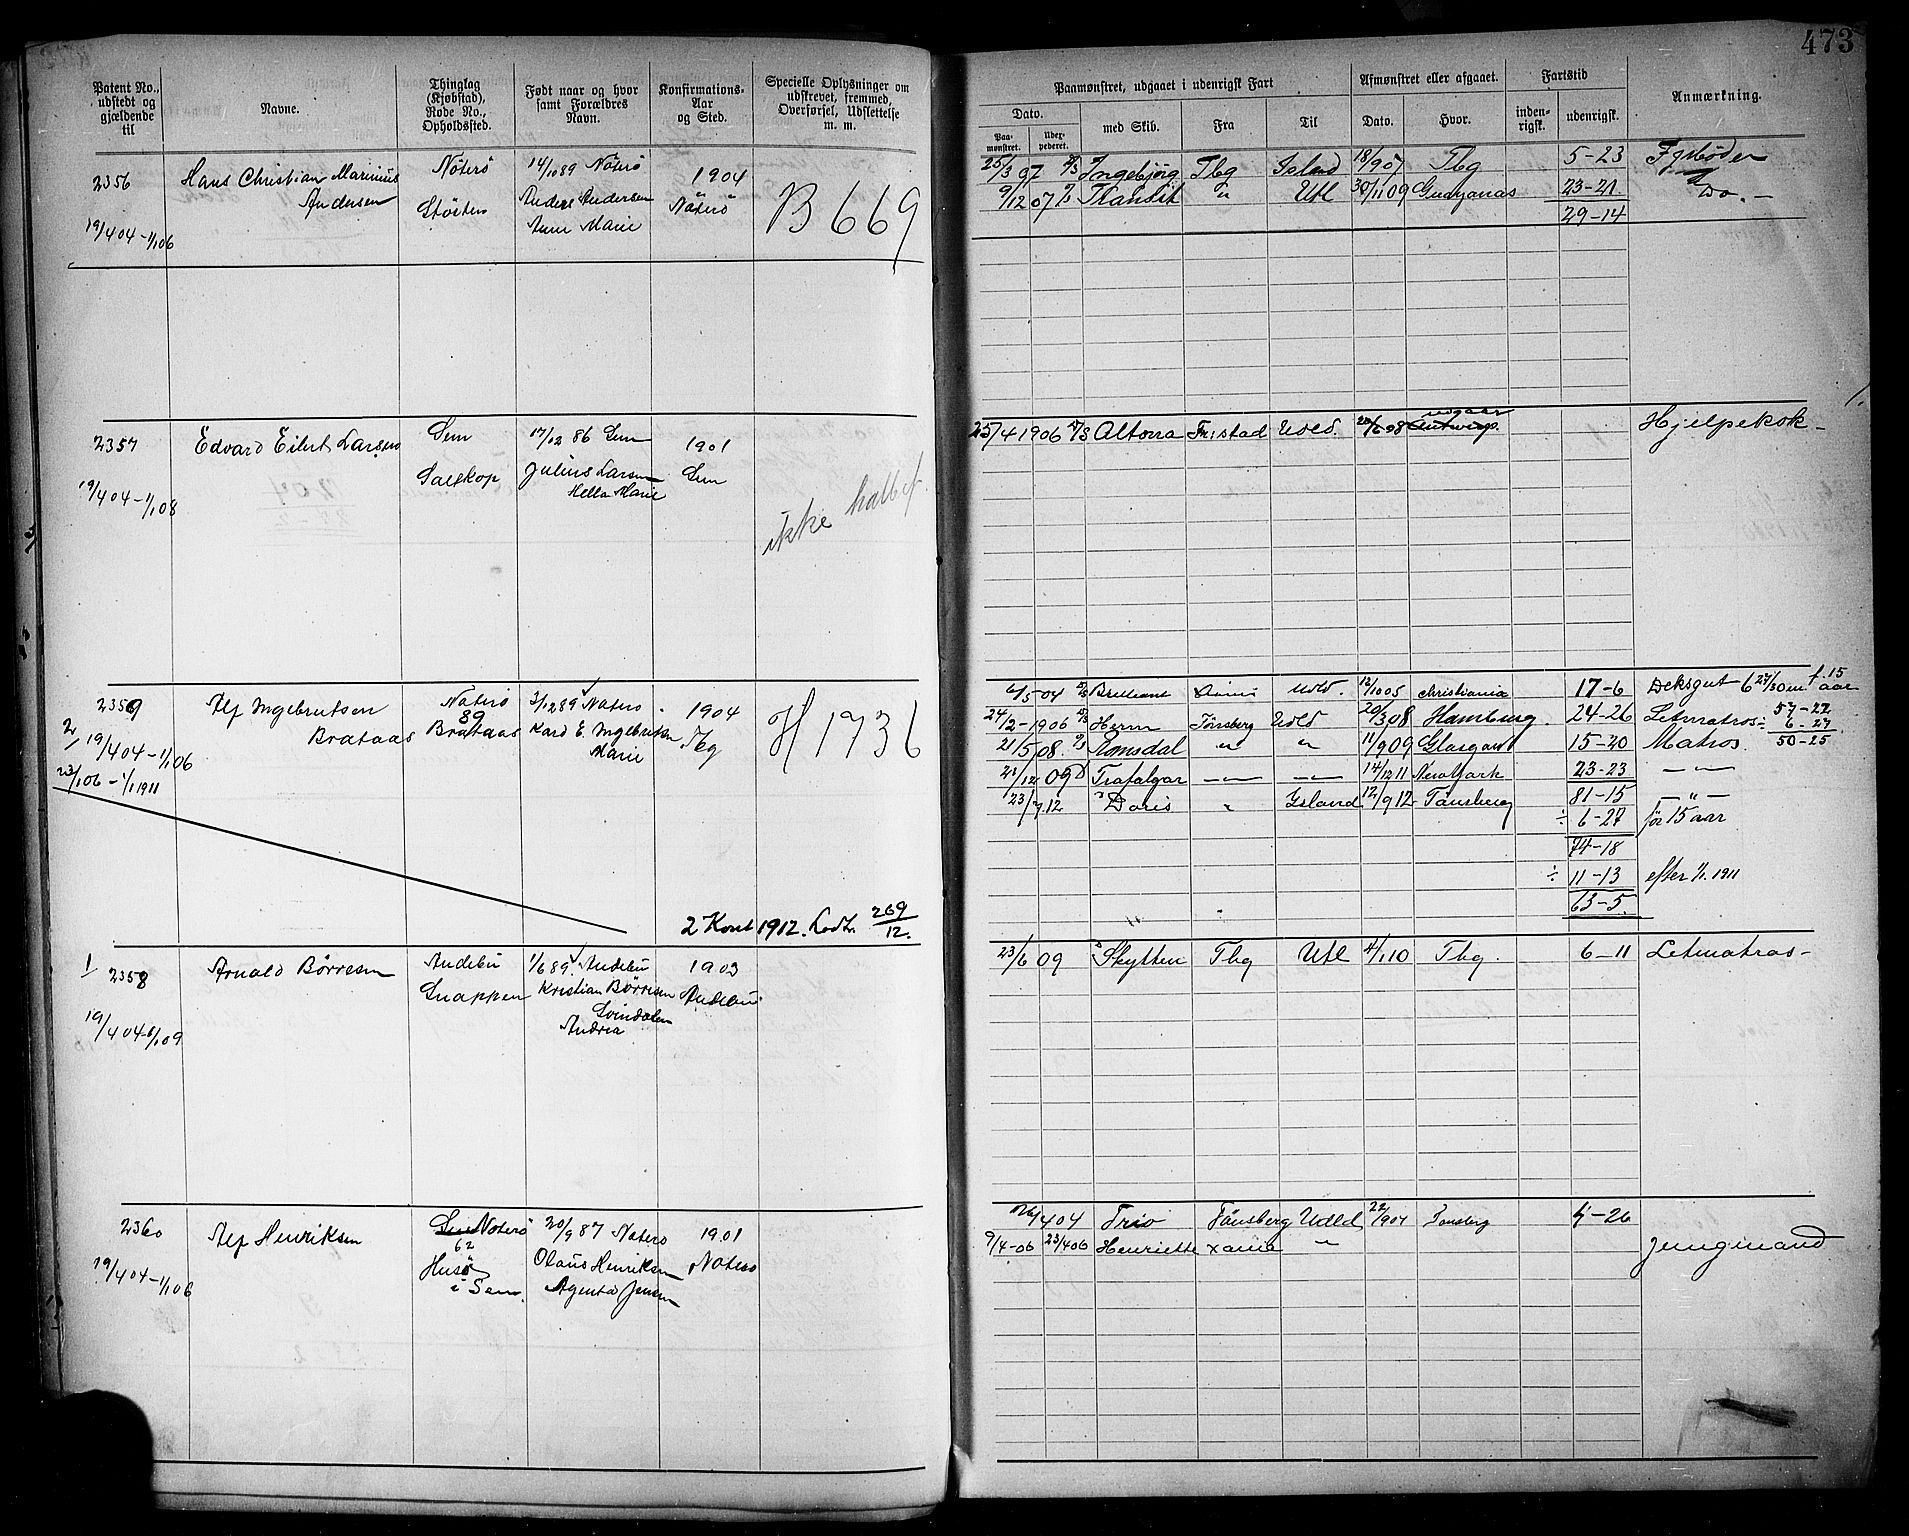 473
Patent No., udstedt og gjældende til
Navne.
Thinglag (Kjøbstad), Rode No., Opholdssted.
Født naar og hvor samt Forældres Navn.
Konfirmations-Aar og Sted.
Specielle Oplysninger om udskrevet, fremmed, Overførsel, Udslettelse m. m.
Paamønstret, udgaaet i udenrigsk Fart
Afmønstret eller afgaaet.
Fartstid
Anmærkning.
Dato.
Paa-mønstret.
Udex-pederet.
med Skib.
Fra
Til
Dato.
Hvor.
inden-rigsk.
udenrigsk.
2356
19/4 04 - 1/1 06
Hans Christian Marinius
Andersen
Nöterö
14/10 89 Nöterö
Anders Andersen
Anne Marie
1904
Nöterö
B 669
25/3 07 Ingebjörg Tbg Island 18/9 07 Tbg 5-23
9/12 07 Transit " Utl 30/11 09 23-21 Do. -
29-14
2357
19/4 04 - 1/1 08
Edvard Eilert Larsen
Sem
17/12 86 Sem
Julius Larsen
Hella Marie
1901
Sem
ikke
25/4 1906 Altona Fr:stad Udld. 08 udgaar Antwerp. Hjelpekok -
2359
2/ 19/4 04 - 1/1 06
23/1 06 - 1/1 1911
Alf Ingebretsen
Brataas
Nöterö
89
Brataas
3/12 89 Nöterö
Kard E. Ingebretsen
Marie
1904
Tbg
H 1936
2 Kont 1912. 269/12.
6/5 04 Brilliant Udld. 12/10 05 Christiania 17-6 Deksgut 6 27/30 m f. 15 aar
24/2-1906 Herm Tönsberg Udld 20/3 08 Hamburg. 24-26 Letmatros 57-22
6-27
21/5 08 Romsdal " " 11/9 09 Glasgow 15-20 Matros. 50-25
21/12 09 Trafalgar -"- -"- 14/12 11 New York 23-23 -"-
23/7.12 Doris " Island 12/9 12 Tönsberg 81-15 -"-
÷ 6-27 för 15 aar
74-18
÷ 11-13 efter 1/1. 1911
63-5.
1/
2358
19/4 04 - 6/1 09
Arnold Börresen
Andebu
Snappen
1/6 89. Andebu
Kristian Börresen
Svindalen
Andrea
1903
Andebu
23/6 09 Skytten Tbg Utl 4/1 10 Tbg. 6-11 Letmatros -
2360
19/4 04 - 1/1 06
Alf Henriksen
Sem Nöterö
62
Husö
i Sem.
20/9 87 Nöterö
Olaus Henriksen
Agenta Jensen
1901
Nöterö
26/4 04 Trio Tönsberg Udld 22/9 04 Tönsberg 4-26
9/4-06 23/4 06 Henriette Xania " Jungmand